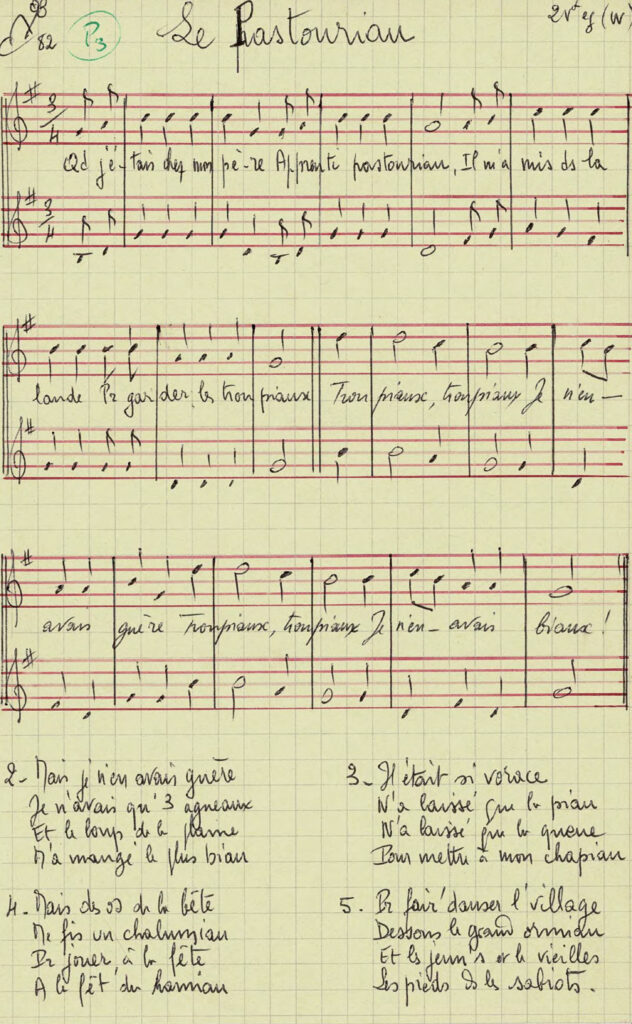 82 P3 Le Pastouriau 2 v eg (W)
3/4
Qd j'é-tais chez mon pè-re Apprenti pastouriau, Il m'a mis ds la
3/4
lande Pr gar der les trou piaux Trou piaux, troupiaux Je n'en—
avais guère Troupiaux, troupiaux Je n'en— avais biaux!
2- Mais je n'en avais guère
Je n'avais qu'3 agneaux
Et le loup de la plaine
M'a mangé le plus biau
3- Il était si vorace
N'a laissé que la piau
N'a laissé que la queue
Pour mettre à mon chapiau
4- Mais des os de la bête
Me fis un chalumiau
Pr jouer à la fête
A la fêt' du hamiau
5- Pr fair' danser l'village
Dessous le grand ormiau
Et les jeun's et les vieilles
Les pieds ds les sabiots.